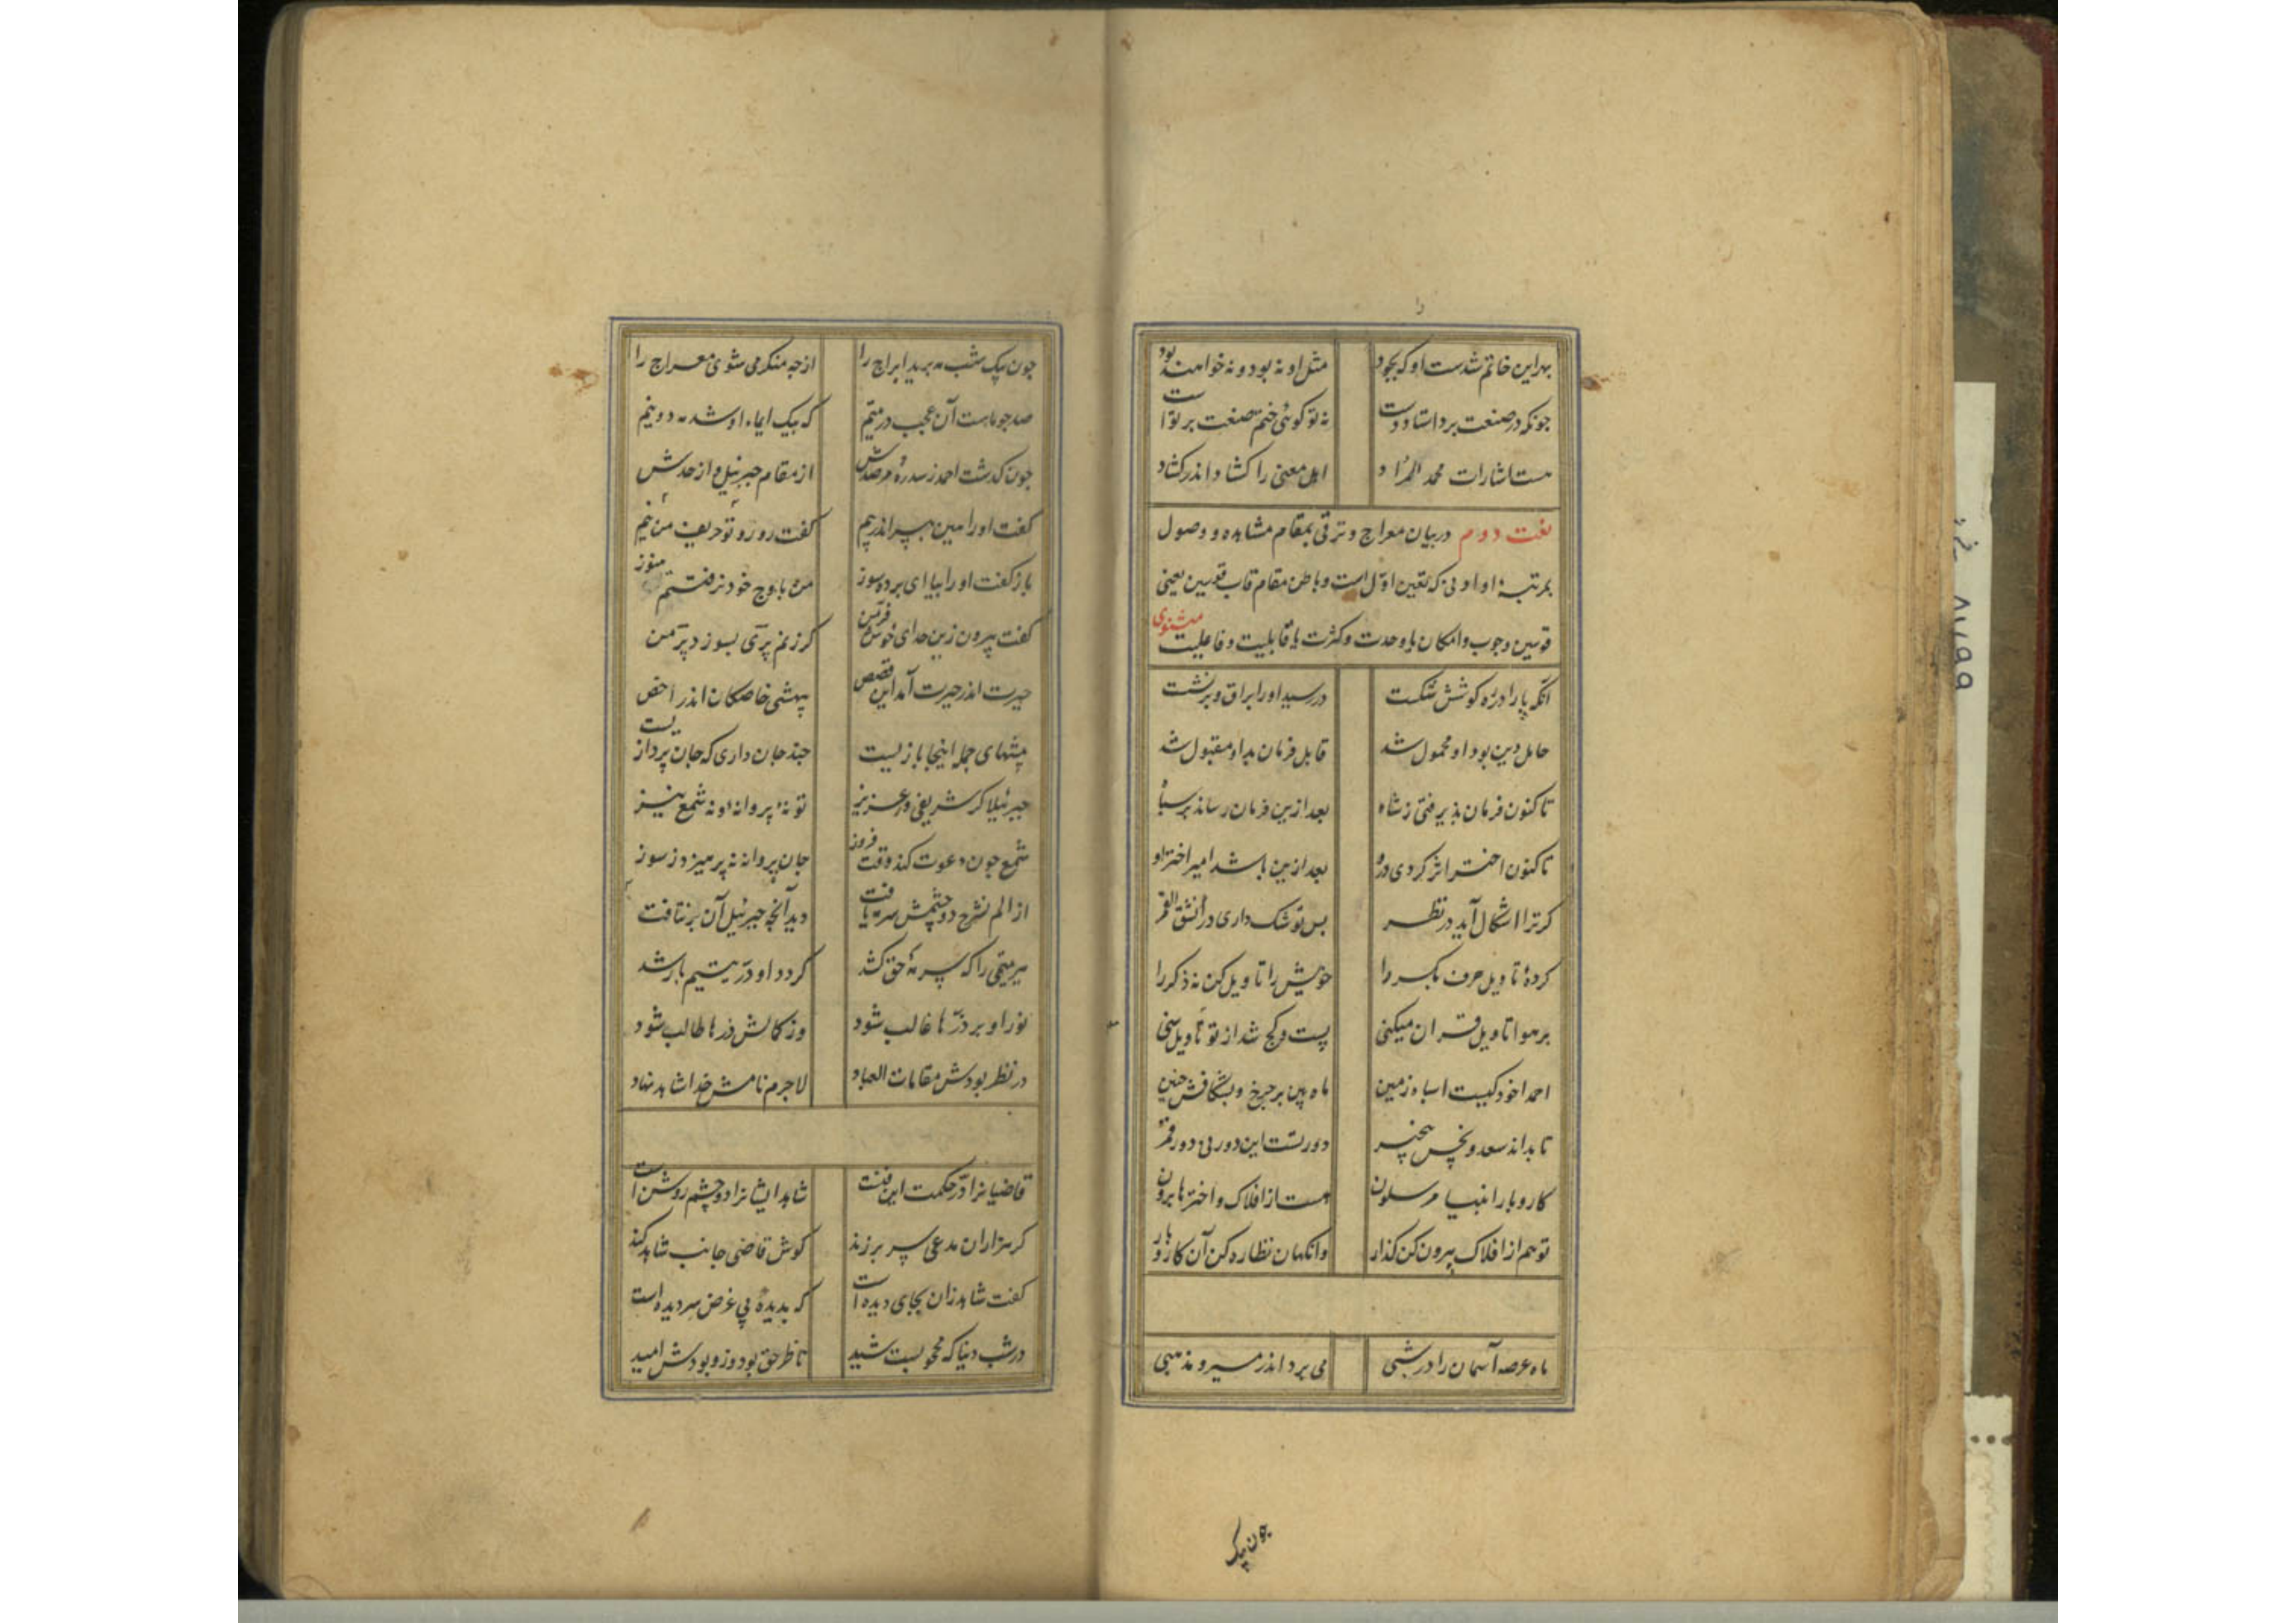 بهر این خاتم شدست او که بجود مثل او نه بود و نه خواهند بود
چونکه در صنعت برد استاد دست نه تو گوئی ختم صنعت بر تو است
هست اشارات محمد المراد اهل معنی را گشاد اندر گشاد
نعت دوم در بیان معراج و ترقی بمقام مشاهده و وصول
بمرتبهٔ او ادنی که تعین اول است و باطن مقام قاب قوسین یعنی
قوسین وجوب و امکان یا وحدت و کثرت یا قابلیت و فاعلیت مثنوی
آنکه پا را در ره کوشش شکست در رسید او را براق و برنشست
حامل دین بود او محمول شد قابل فرمان بد او مقبول شد
تا کنون فرمان پذیرفتی ز شاه بعد ازین فرمان رساند بر سپاه
تا کنون اختر اثر کردی درو بعد ازین باشد امیر اختر او
گر ترا اشکال آید در نظر پس تو شک داری در انشق القمر
کردهٔ تاویل حرف بکر را خویش را تاویل کن نه ذکر را
بر هوا تاویل قرآن میکنی پست و کج شد از تو تاویل سنی
احمدا خود کیست اسپاه زمین ماه بین بر چرخ و بشکافش جبین
تا بداند سعد و نحس بیخبر دور تست این دور نی دور قمر
کار و بار انبیا و مرسلون هست از افلاک و اخترها برون
تو هم از افلاک بیرون کن گذار وانگهان نظاره کن آن کار و بار
ماه عرصه آسمان را در شبی می برد اندر مسیر و مذهبی
چون یک
چون بیک شب مه برید ابراج را از چه منکر می شوی معراج را
صد چو ماهست آن عجب در یتیم که بیک ایماء او شد مه دو نیم
چون گذشت احمد ز سدره و مرصدش از مقام جبرئیل و از حدش
گفت او را هین بپر اندر پیم گفت رو رو تو حریف من نیم
باز گفت او را بیا ای پرده سوز من باوج خود نرفتستم هنوز
گفت بیرون زین حد ای خوش فر من گر زنم پری بسوزد پر من
حیرت اندر حیرت آمد این قصص بیهشی خاصگان اندر اخص
بیهشیهای جمله اینجا بازیست چند جان داری که جان پردازیست
جبرئیلا گر شریفی و عزیز تو نهٔ پروانه و نه شمع نیز
شمع چون دعوت کند وقت فروز جان پروانه نپرهیزد ز سوز
از الم نشرح دو چشمش سرمه یافت دید آنچه جبرئیل آن بر نتافت
مر یتیمی را که سرمهٔ حق کشد گردد او در یتیم با رشد
نور او بر درّها غالب شود وز کمالش درها طالب شود
در نظر بودش مقامات العباد لاجرم نامش خدا شاهد نهاد
قاضیانرا در حکمت این فنست شاهد ایشانرا دو چشم روشن است
گر هزاران مدعی سر بر زند گوش قاضی جانب شاهد کند
گفت شاهد زان بجای دیده است که بدیدهٔ بی غرض سر دیده است
در شب دنیا که محجوبست شید ناظر حق بود و زو بودش امید